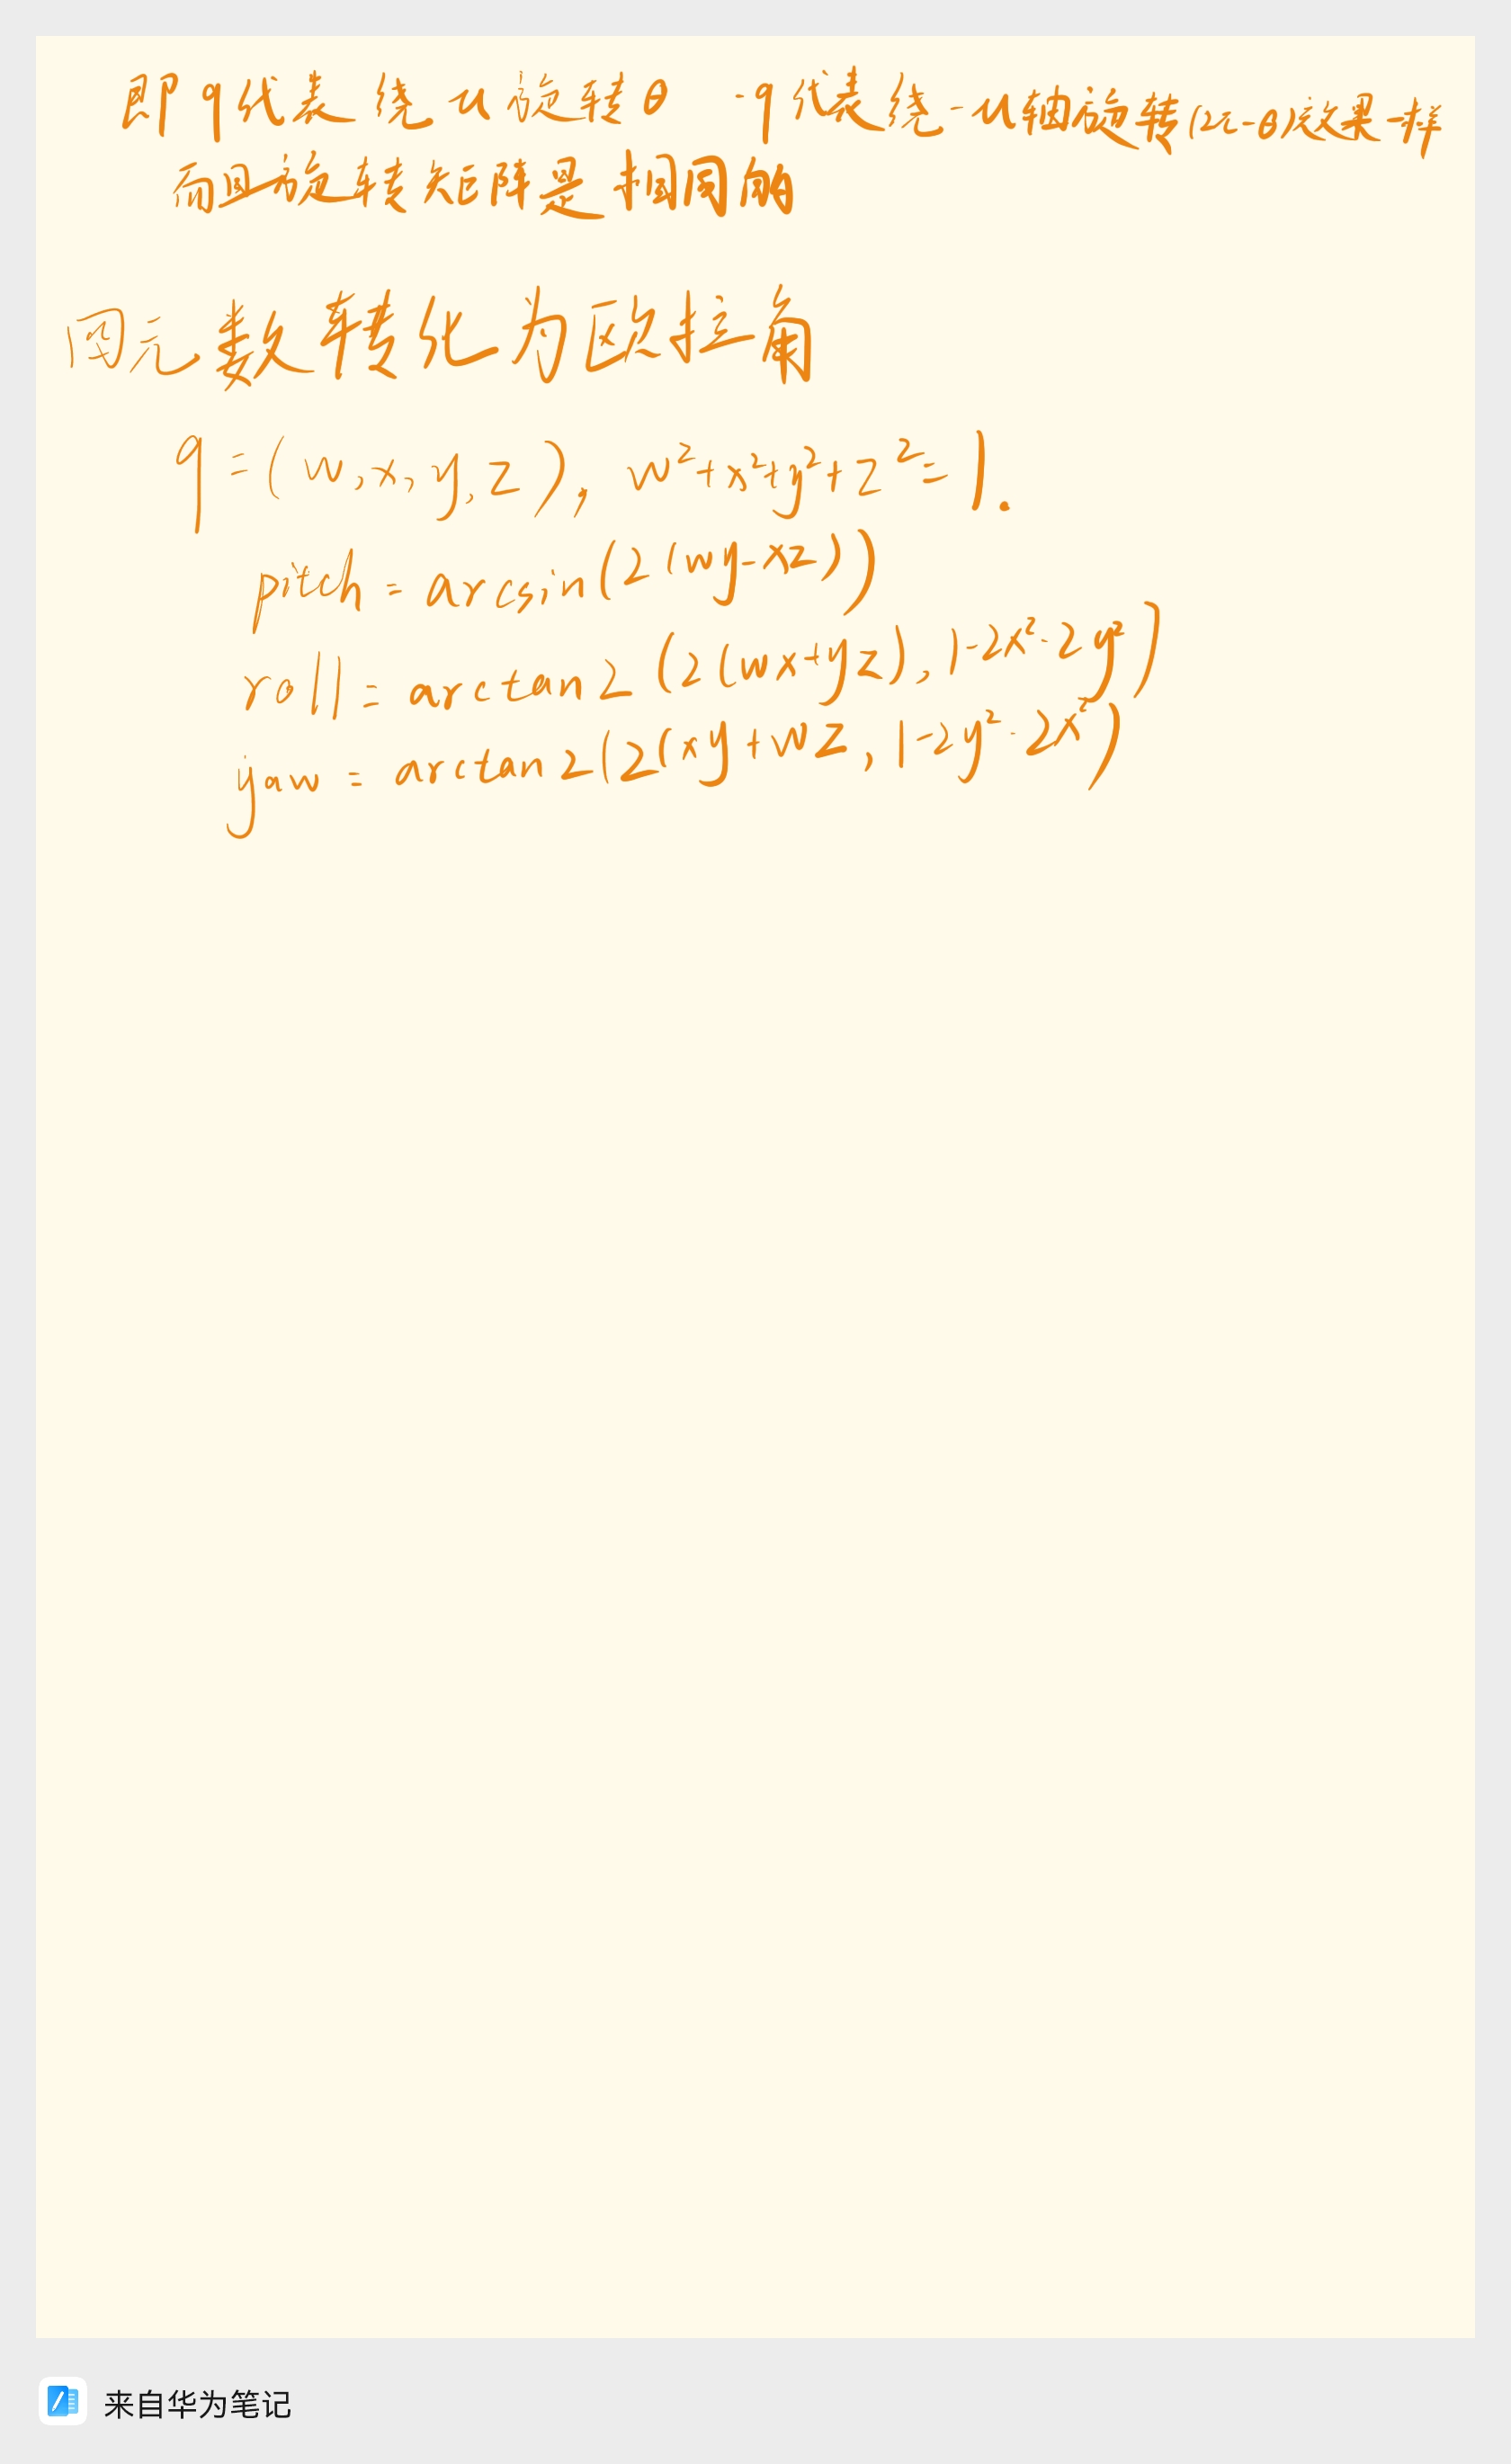 即q代表绕u旋转θ -q代表绕-u轴旋转(2π-θ)效果一样
而且旋转矩阵是相同的
四元数转化为欧拉角
q=(w,x,y,z), w²+x²+y²+z²=1.
pitch = arcsin(2(wy-xz))
roll = arctan2(2(wx+yz),1-2x²-2y²)
yaw = arctan2(2(xy+wz,1-2y²-2x²)
来自华为笔记